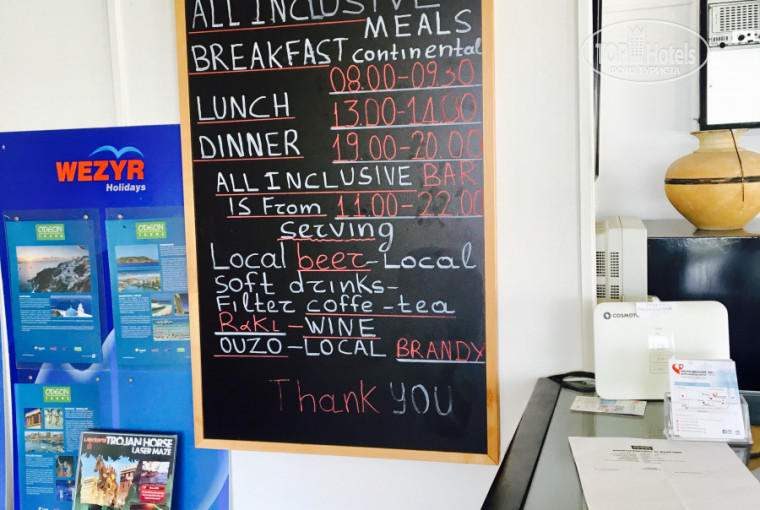 ALL INCLUSIVE
MEALS
BREAKFAST continental
08.00-09.30
LUNCH 13.00-14.00
DINNER 19.00-20.00
ALL INCLUSIVE BAR
IS From 11.00-22.00
Serving
Local beer-Local
Soft drinks-
Filter coffe-tea
RaKI-WINE
OUZO-LOCAL BRANDY
Thank YOU
WEZYR
Holidays
ODEON
TOURS
ODEON
TOURS
ODEON
TOURS
TROJAN HORSE
LASER MAZE
TOP Hotels
COSMOTE